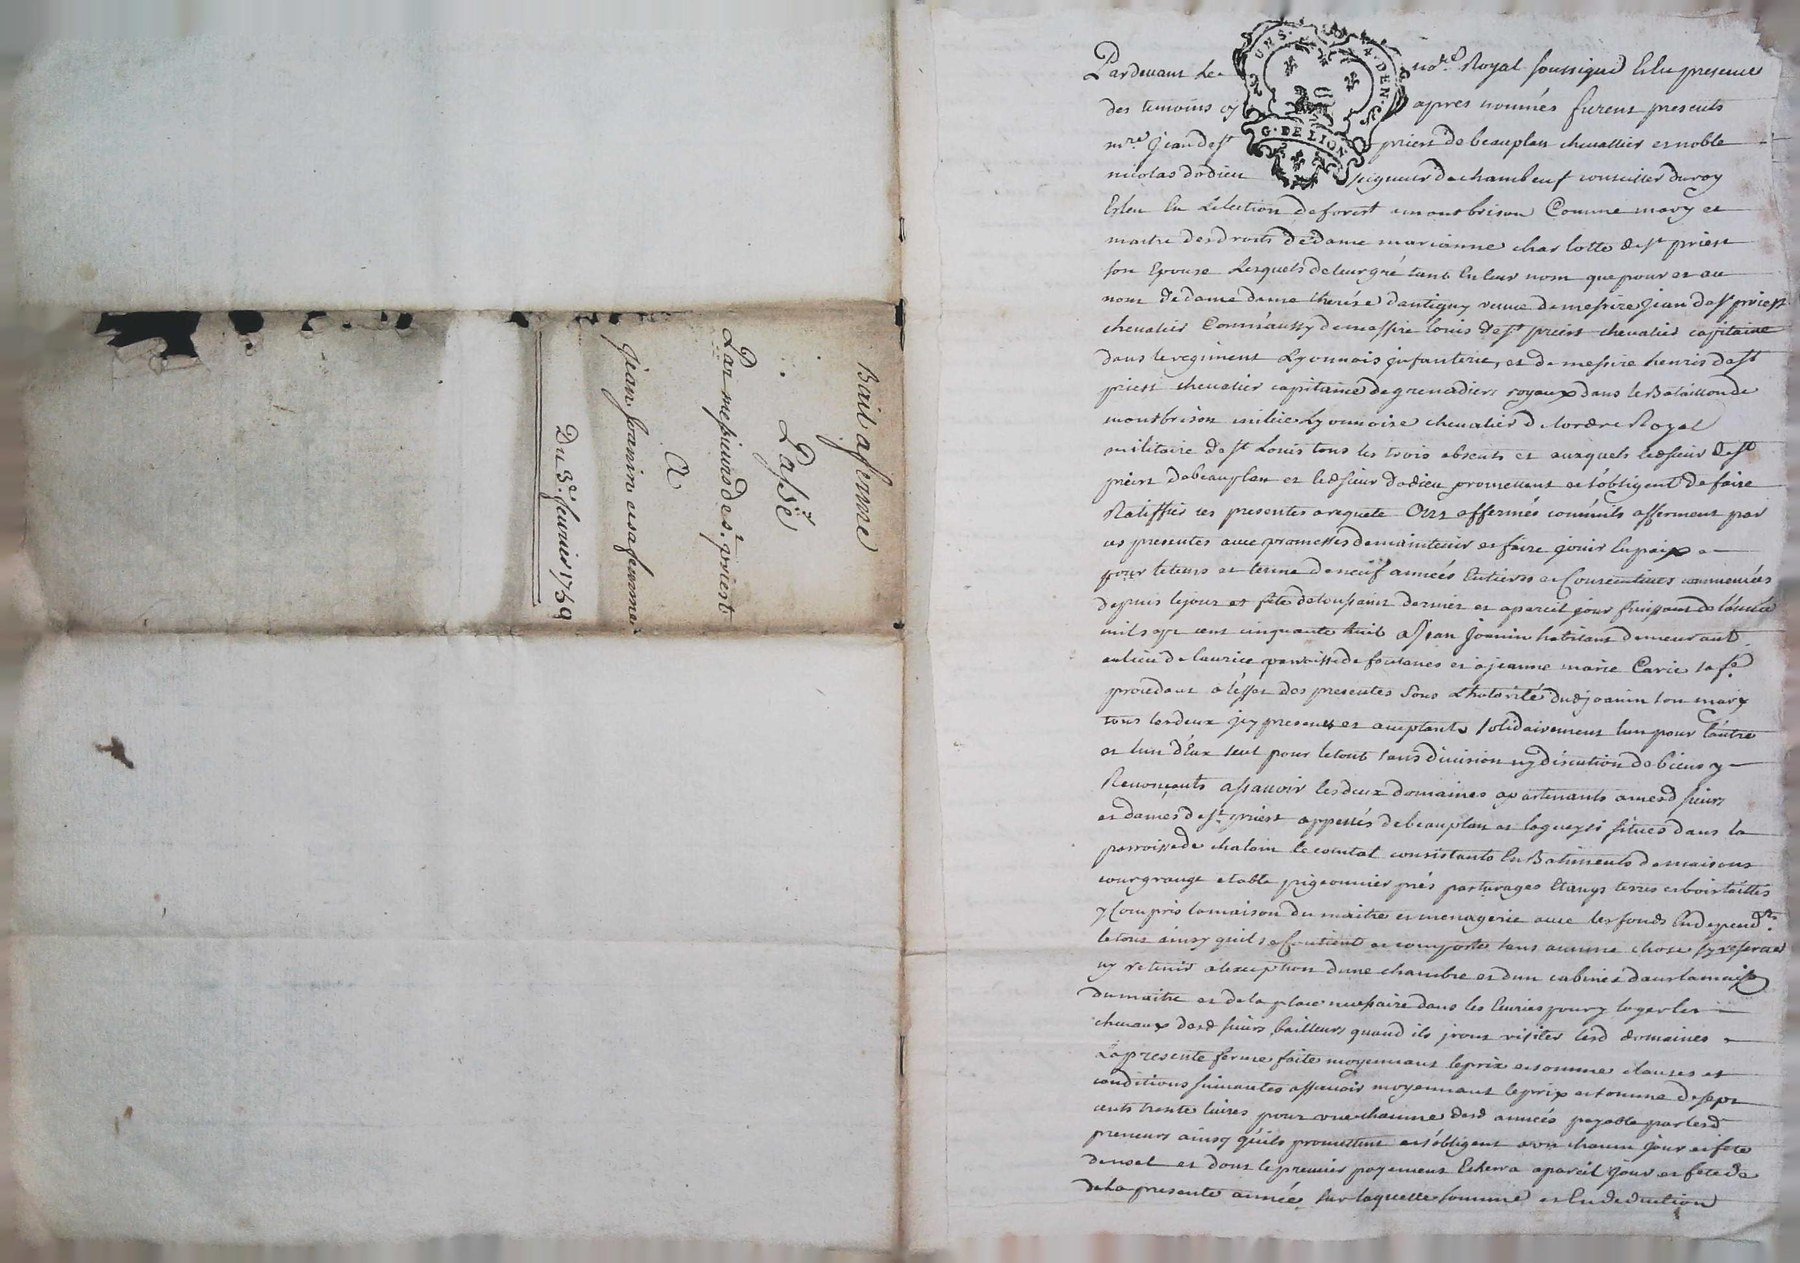 Bail a ferme
Passé
Par messieurs de st. priest
A
jean Joanin et sa femme
Du 3e. feurier 1759
UNS. 4. DEN.
G. DE LION
Pardeuant Le nore. Royal soussigné Et En presence
des temoins cy apres nommés furent presents
mre. Jean de st priest de beauplan cheuallier et noble
nicolas dodieu seigneur de chambeuf conseiller du roy
Esleu En Lelection de forest a montbrison Comme mary et
maitre des droits de dame marianne charlotte de st priest
son Epouse Lesquels de leur gré tant En leur nom que pour et au
nom de dame dame therése dantigny veuue de messire jean de st priest
cheualier Comm'aussy de messire louis de st priest cheualier capitaine
dans le regiment Lyonnois jnfanterie, et de messire henris de st
priest cheualier capitaine de grenadiers royaux dans le Bataillon de
montbrison milice Lyonnoise cheualier de Lordre Royal
militaire de st Louis tous les trois absents et auxquels led sieur de st
priest de beauplan et led sieur dodieu promettent et s'obligent de faire
Ratiffier ces presentes a requete Onts affermés comm'ils afferment par
ces presentes auec promesses de maintenir et faire jouir En paix
pour le tems et terme de neuf années Entieres et Consecutiues commencées
depuis le jour et fete de toussaint dernier et a pareil jour finissant de l'année
mil sept cent cinquante huit a Jean Joanin habitant demeurant
au lieu de laurice parroisse de fontanes et a jeanne marie Carie sa fe.
procedant a l'effet des presentes sous L'hotorité dud joanin son mary
tous les deux jcy presents et acceptants solidairement lun pour l'autre
et lun d'Eux seul pour le tout sans diuision ny discution de biens y
Renonçants assauoir les deux domaines apartenants a mesd sieurs
et dames de st. priest appellés de beauplan et lagueysi situés dans la
parroisse de chalain le comtal consistants En Batiments de maisons
cour grange etable pigeonnier prés pasturages Etangs terres et bois taillis
y Compris la maison du maitre et menagerie auec les fonds En dependts.
le tout ainsy quil se Contient et comporte sans aucune chose sy reseruer
ny retenir a lexception dune chambre et dun cabinet dans la maison
du maitre et de la place necessaire dans les Ecuries pour y loger les
cheuaux desd sieurs bailleurs quand ils jront visiter lesd domaines
La presente ferme faite moyennant le prix et somme clauses et
conditions suiuantes assauoir moyennant le prix et somme de sept
cents trente liures pour une chacune desd années payable par lesd
preneurs ainsy qu'ils promettent et s'obligent a un chacun jour et fete
de noel et dont le premier payement Echerra a pareil jour et fete de
de la presente année, sur laquelle somme et En deduction